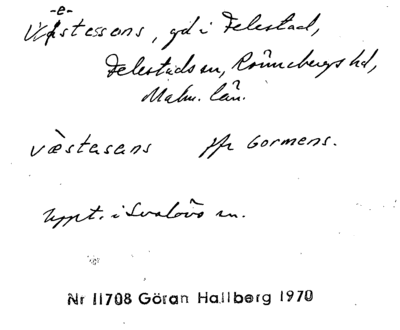 -e-
Västessons, gd i Felestad,
Felestads sn, Rönnebergs hd,
Malm. län.
væ̀stasans jfr Gormens.
Uppt. i Svalövs sn.
Nr 11708 Göran Hallberg 1970